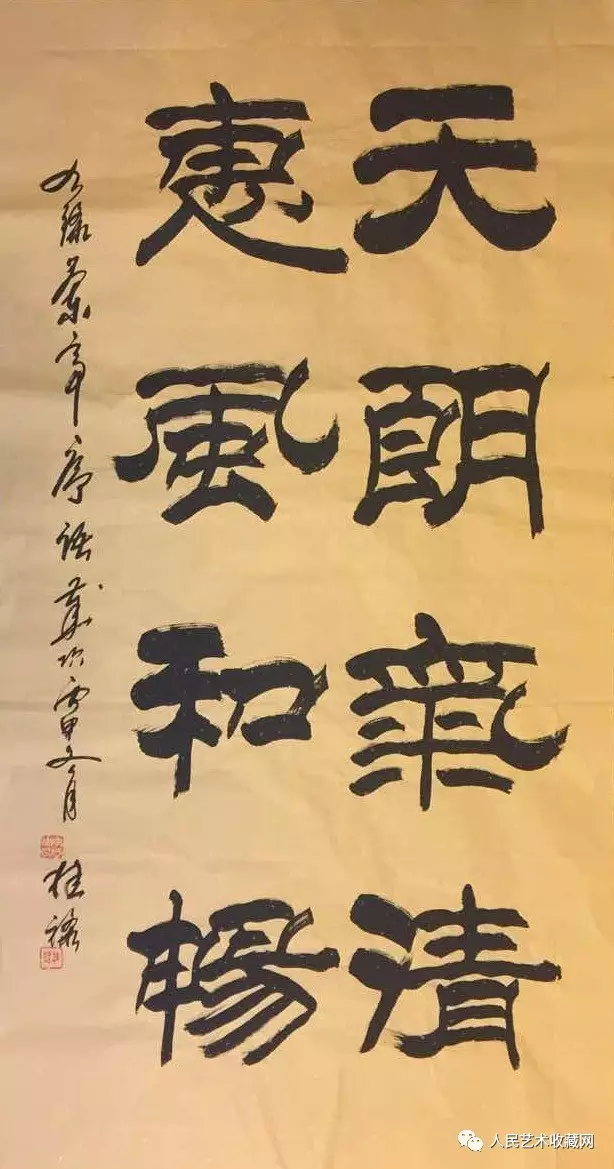 天朗氣清
惠風和暢
右録蘭亭序語歲次月
桂
人民艺术收藏网